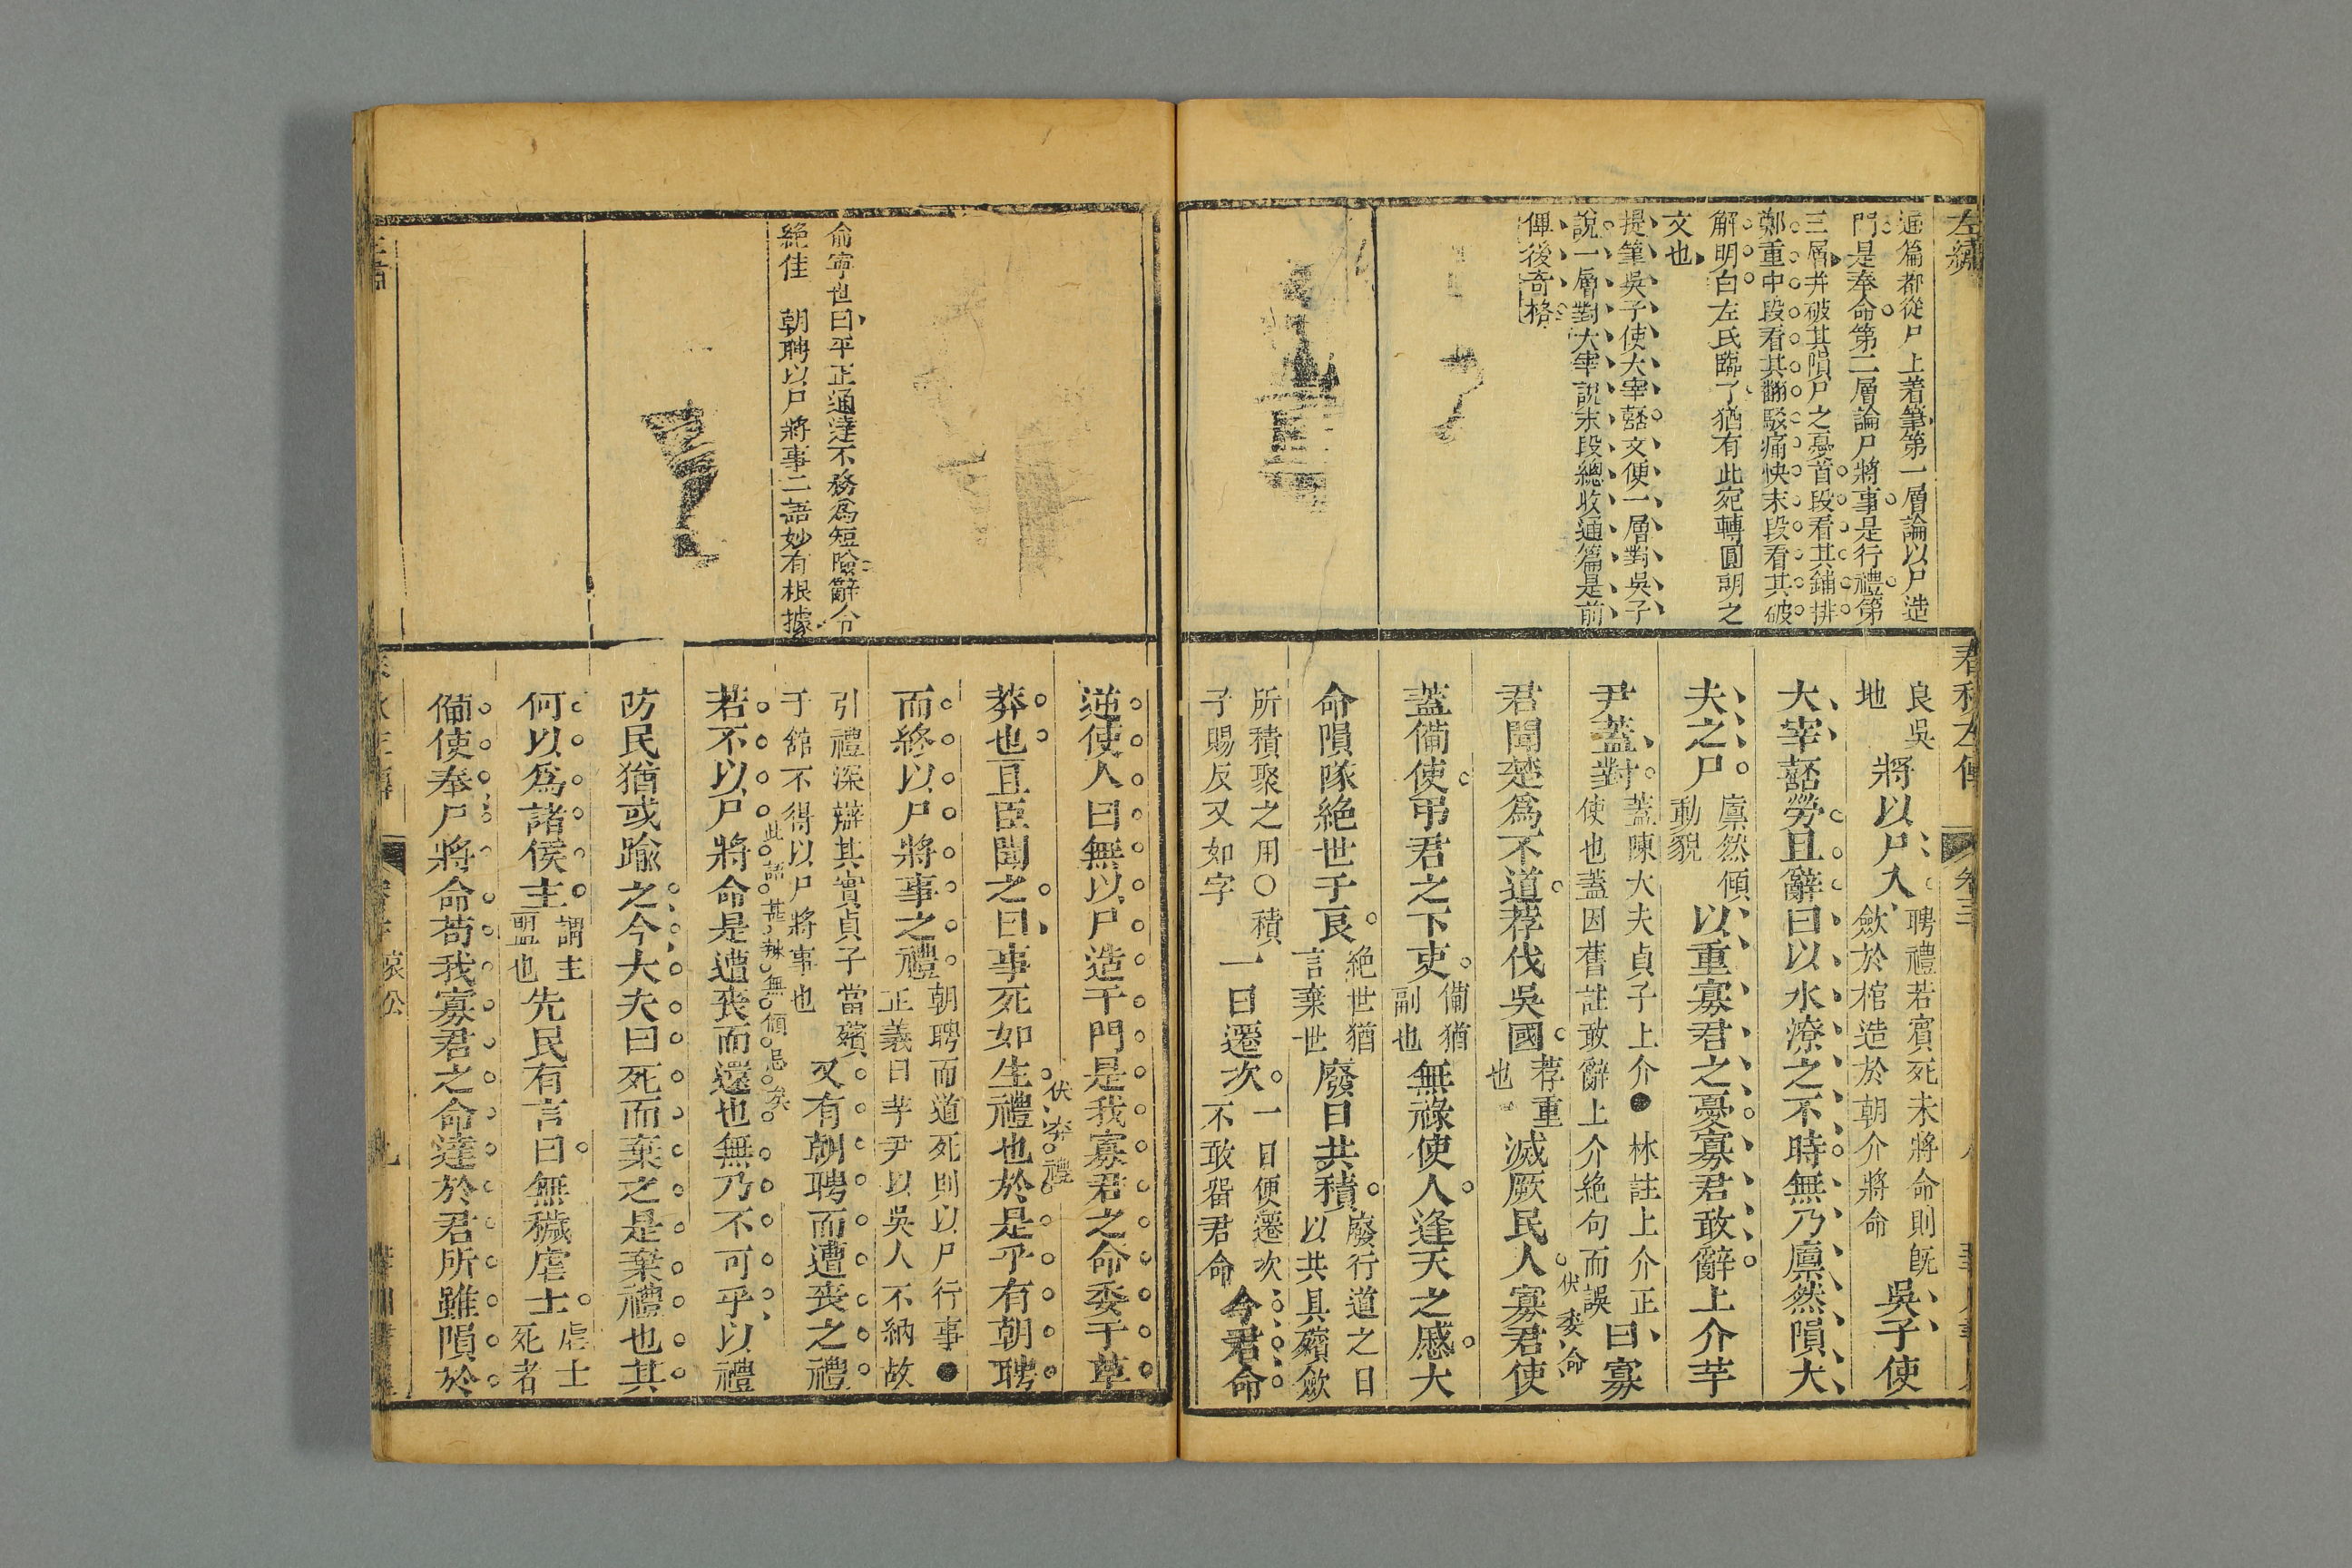 左繡
通篇都從尸上着筆第一層論以尸造
門是奉命第二層論尸將事是行禮第
三層并破其隕尸之憂首段看其鋪排
鄭重中段看其翻駁痛快末段看其破
解明白左氏臨了猶有此宛轉圓朗之
文也
提筆吳子使大宰嚭文便一層對吳子
說一層對大宰說末段總收通篇是前
俾後奇格
春秋左傳
卷三
良吳
地
將以尸入
聘禮若賓死未將命則既
歛於棺造於朝介將命
吳子使
大宰嚭勞且辭曰以水潦之不時無乃廩然隕大
夫之尸
廩然傾
動貌
以重寡君之憂寡君敢辭上介芋
尹蓋對
蓋陳大夫貞子上介●林註上介正
使也蓋因舊註敢辭上介絶句而誤
曰寡
伏委命
君聞楚爲不道荐伐吳國
荐重
也
滅厥民人寡君使
蓋備使弔君之下吏
備猶
副也
無祿使人逢天之慼大
命隕隊絶世于良
絶世猶
言棄世
廢日共積
廢行道之日
以共具殯歛
所積聚之用○積
子賜反又如字
一日遷次
一日便遷次
不敢畱君命
今君命
俞寧世曰平正通達不務爲短險辭令
絶佳　朝聘以尸將事二語妙有根據
逆使人曰無以尸造于門是我寡君之命委于草
伏弃禮
莽也且臣聞之曰事死如生禮也於是乎有朝聘
而終以尸將事之禮
朝聘而道死則以尸行事●
正義曰芋尹以吳人不納故
引禮深辯其實貞子當殯
于館不得以尸將事也
又有朝聘而遭喪之禮
此語甚辣無傾忌矣
若不以尸將命是遭喪而還也無乃不可乎以禮
防民猶或踰之今大夫曰死而棄之是棄禮也其
何以爲諸侯主
謂主
盟也
先民有言曰無穢虐士
虐士
死者
備使奉尸將命苟我寡君之命達於君所雖隕於
哀公